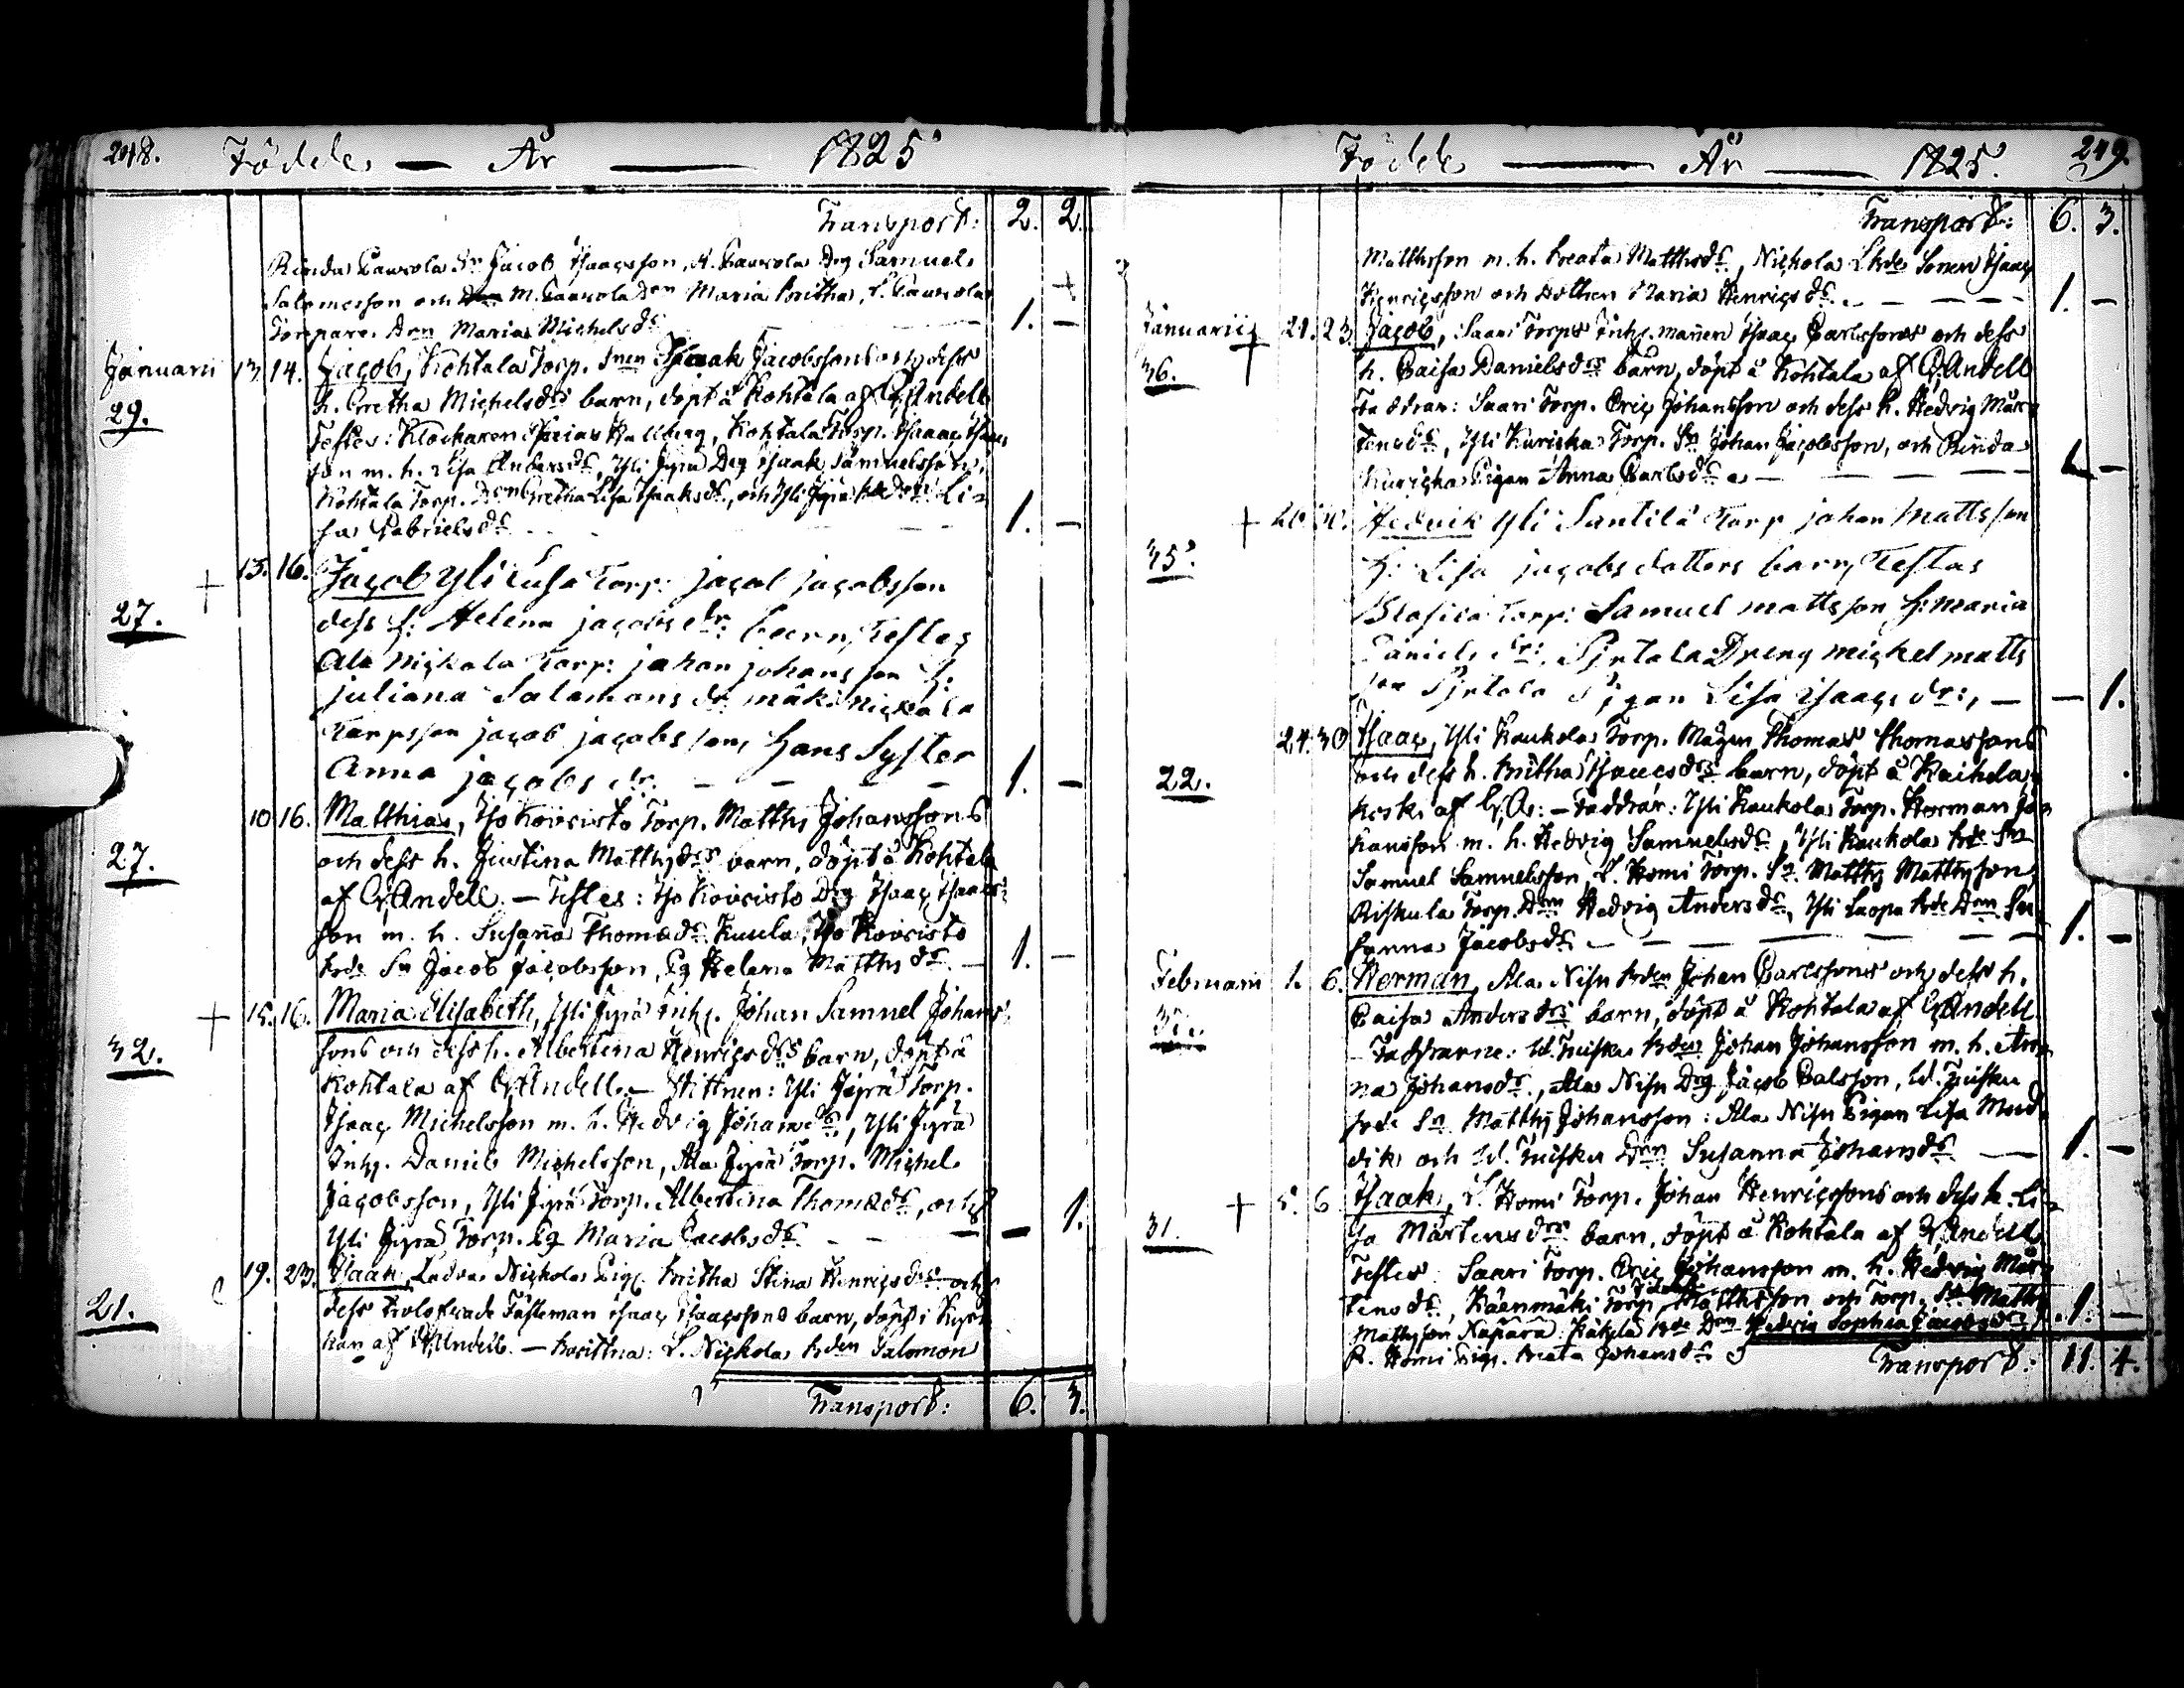 248. Födde — År — 1825
Transport: 2. 2.
Rinda Caurola Sn Jacob Isaacsson, A. Caurola Drg Samuel
Salomosson och M. Caurola Dn Maria Britha, L. Caurola
Torpare Drn Maria Michelsdr 1. —
Januarii 13. 14. Jacob, Kohtala Torp. Snen Isaak Jacobssons och dess
29. h. Gretha Michelsdrs barn, döpt å Kohtala af G. Andell
Testes: Klockaren Hallberg, Kohtala Torp. Isaac Isaacs
son m. h. Lisa Andersdr, Yli Jyrä Drg Isaak Samuelsson,
Kohtala Torp. Dren Gretha Lisa Isaaksdr, och Yli Jyrä Drn Li-
sa Gabrielsdr 1. —
+ 15. 16. Jacob Yli Torp: jacob jacobsson
27. dess h: Helena jacobs dr: barn, Testes
Ala Nickala Torp: johan johansson h:
juliana Salamons dr mäki nickala
Torpsson jacob jacobsson, hans Syster
Anna jacobs dr: — — — 1. —
10 16. Matthias, Iso Koivisto Torp. Matths Johanssons
27. och dess h. Justina Matthsdrs barn, döpt å Kohtala
af G. Andell. — Testes: Iso Koivisto Drg Isaac Isaacs-
son m. h. Susanna Thomædr Kuula, Iso Koivisto
Sn Jacob Jacobsson, Pg Helena Matths dr — 1. —
+ 15. 16. Maria Elisabeth, Yli Jyrä Inhs. Johan Samuel Johans-
32. sons och dess h. Albertina Henricsdrs barn, döpt å
Kohtala af G. Andell. — Vittnen: Yli Jäyrä Torp.
Isaac Michelsson m. h. Hedvig Johansdr, Yli Jyrä
Inhs. Daniel Michelsson, Ala Jyrä Torp. Michel
Jacobsson, Yli Jyrä Torp. Albertina Thomædr, och
Yli Jyrä Torp. Pg Maria Jacobsdr — — 1.
19. 23. Isaak, Ladva Nickola Pigs Britha Stina Henricsdrs och
21. dess trolofvade Fästeman Isaac Isaacssons barn, döpt i Kyr-
kan af G. Andell. — L. Nickola Salomon
Transport: 6. 3.
Födde — År — 1825. 249.
Transport: 6. 3.
Matthsson m. h. Beata Matthsdr, Nickola Sonen Isaac
Henricsson och Dottren Maria Henricsdr. — — 1. —
Januarii + 21. 23. Jacob, Saari Torps Inhs. mannen Isaac Carlssons och dess
36. h. Caisa Danielsdrs barn, döpt å Kohtala af G. Andell
Faddrar: Saari Torp. Eric Johansson och dess h. Hedvig Mår-
tensdr, Yli Kuriska Torp. Sn Johan Jacobsson, och Rinda
Kuricka Pigan Anna Carlsdr — — 1. —
+ Hedvik Yli Santila Torp johan Mattsson
35. h: Lisa jacobs dotters barn, Testas
Torp: Samuel mattsson h: maria
Daniels dr: Dreng mickel matts
son Pigan Lisa isaacs dr: — — 1.
24. 30 Isaac, Yli Kaukola Torp. Mågen Thomas Thomassons
22. och dess h. Britha Isaacsdrs barn, döpt å Raihda-
koski af G. A: — Faddrar: Yli Kaukola Torp. Herman Jo-
hansson m. h. Hedvig Samuelsdr, Yli Kaukola Sn
Samuel Samuelsson, L. Homi Torp. Sn. Matths Matthsson,
Riskula Torp. Drn Hedvig Andersdr, Yli Laopa Drn Su-
sanna Jacobsdr — — — 1. —
Februarii 1. 6. Herman, Ala Nisu Johan Carlssons och dess h.
Caisa Andersdrs barn, döpt å Kohtala af G. Andell
— Faddrarne: Johan Johansson m. h. An-
na Johansdr, Ala Nisu Drg Jacob Calsson,
Sn Matths Johansson: Ala Nisu Pigan Lisa
och Drn Susanna Johansdr — 1. —
+ 5. 6 Isaak, L. Homi Torp. Johan Henricssons och dess h. Li-
31. sa Mårtensdrs barn, döpt å Kohtala af G. Andell
Testes: Saari Torp. Eric Johansson m. h. Hedvig Mår-
tensdr, Käenmäki Torp. Matthsson och Torp. Sn Matths
Matthsson Drn Hedvig Sophia Jacobsdr, 1. —
R. Homi Pigs. Beata Johansdr
Transport: 11. 4.